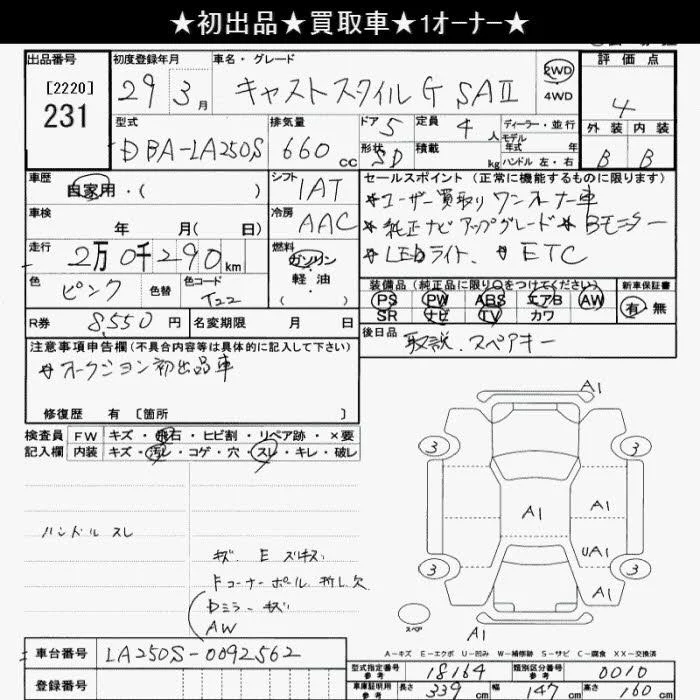 ★初出品★買取車★1オーナー★
出品番号 初度登録年月 車名・グレード 評価点
[2220]
231
29 3月 キャストスタイルG SAⅡ 2WD 4WD 4
型式 排気量 ドア 5 定員 4人 ディーラー・並行 外装 内装
DBA-LA250S 660cc 形状 5D 積載 kg モデル年式 年 ハンドル 左・右 B B
車歴 自家用・( ) シフト IAT セールスポイント (正常に機能するものに限ります)
車検 年 月( 日) 冷房 AAC *ユーザー買取りワンオーナー車
走行 2万0千290km 燃料 ガソリン 軽油 ( ) *純正ナビアップグレード *Bモニター
*LEDライト、*ETC
色 ピンク 色替 色コード T22
装備品 (純正品に限り○をつけてください) 新車保証書
PS PW ABS エアB AW 有・無
SR ナビ TV カワ
R券 8,550円 名変期限 月 日 後日品 取説.スペアキー
注意事項申告欄(不具合内容等は具体的に記入して下さい)
*オークション初出品車
修復歴 有 [箇所 ]
検査員 FW キズ・飛石・ヒビ割・リペア跡・×要
記入欄 内装 キズ・汚レ・コゲ・穴・スレ・キレ・破レ
A1
3 3
A1 A1
UA1
3 3
A1
スペア
A1
ハンドル スレ
キズ. E ズレキズ
Fコーナーポール.折レ欠
Dミラーキズ
AW
A−キズ E−エクボ U−凹み W−補修跡 S−サビ C−腐食 XX−交換済
車台番号 LA250S-0092562
型式指定番号 参考 18164 類別区分番号 参考 0010
登録番号
車庫証明用 参考 長さ 339cm 幅 147cm 高さ 160cm